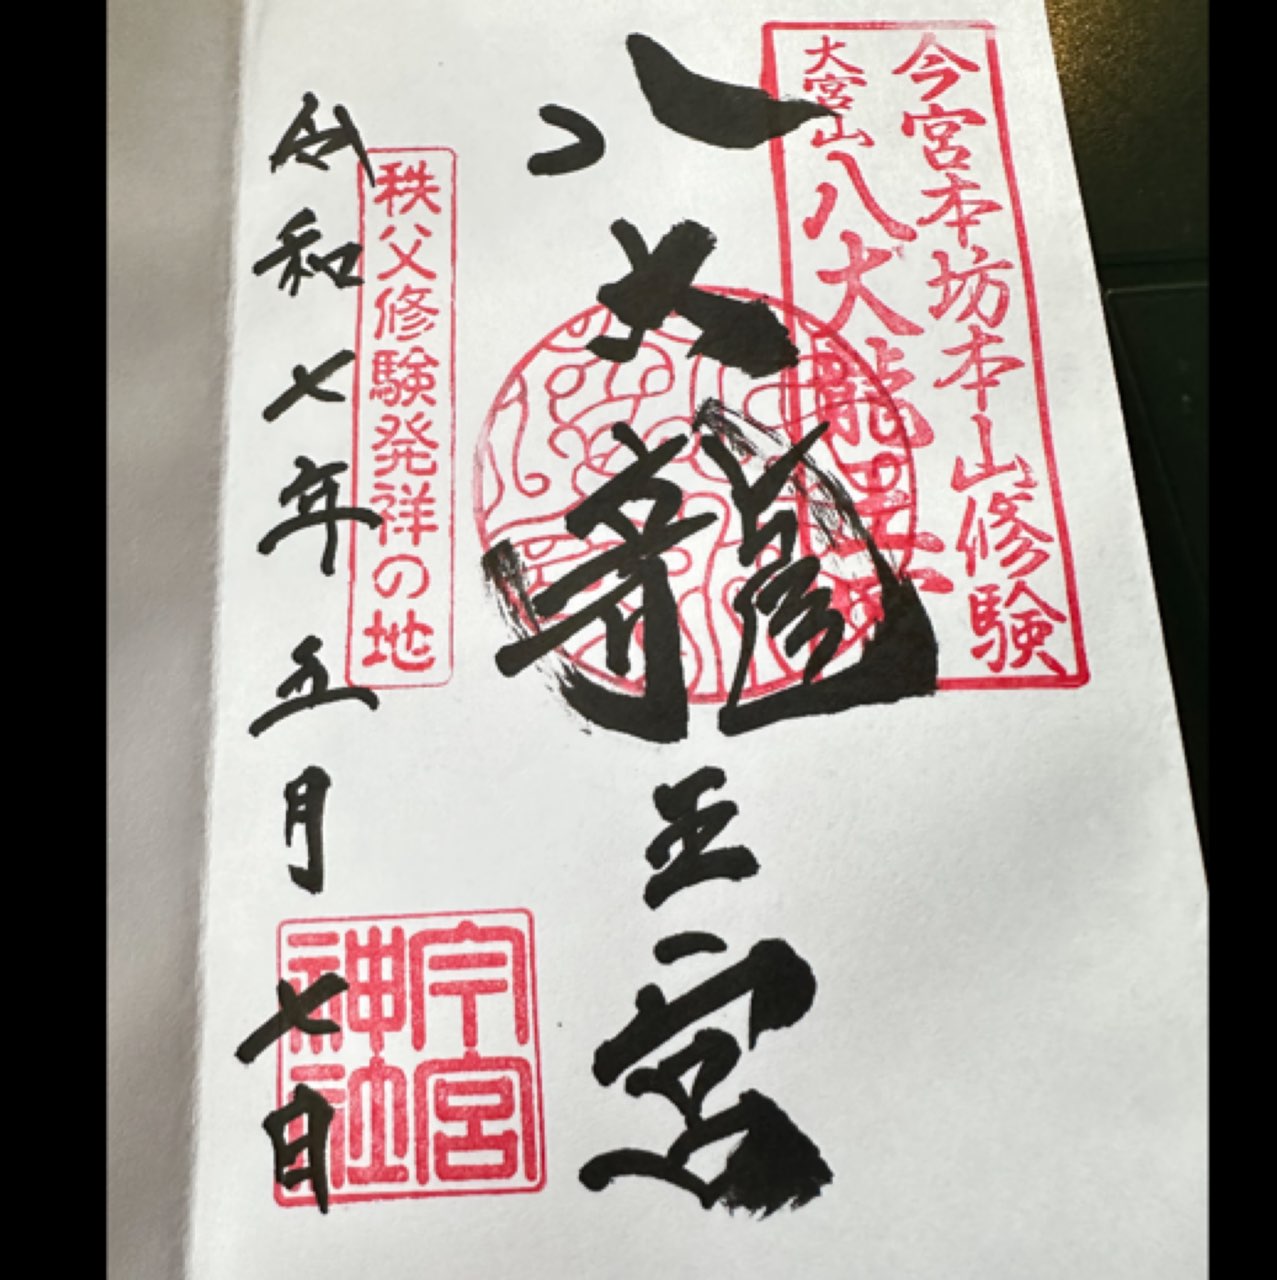 今宮本坊本山修験
大宮山八大龍王宮
八大龍王宮
秩父修験発祥の地
令和七年五月七日
今宮
神社